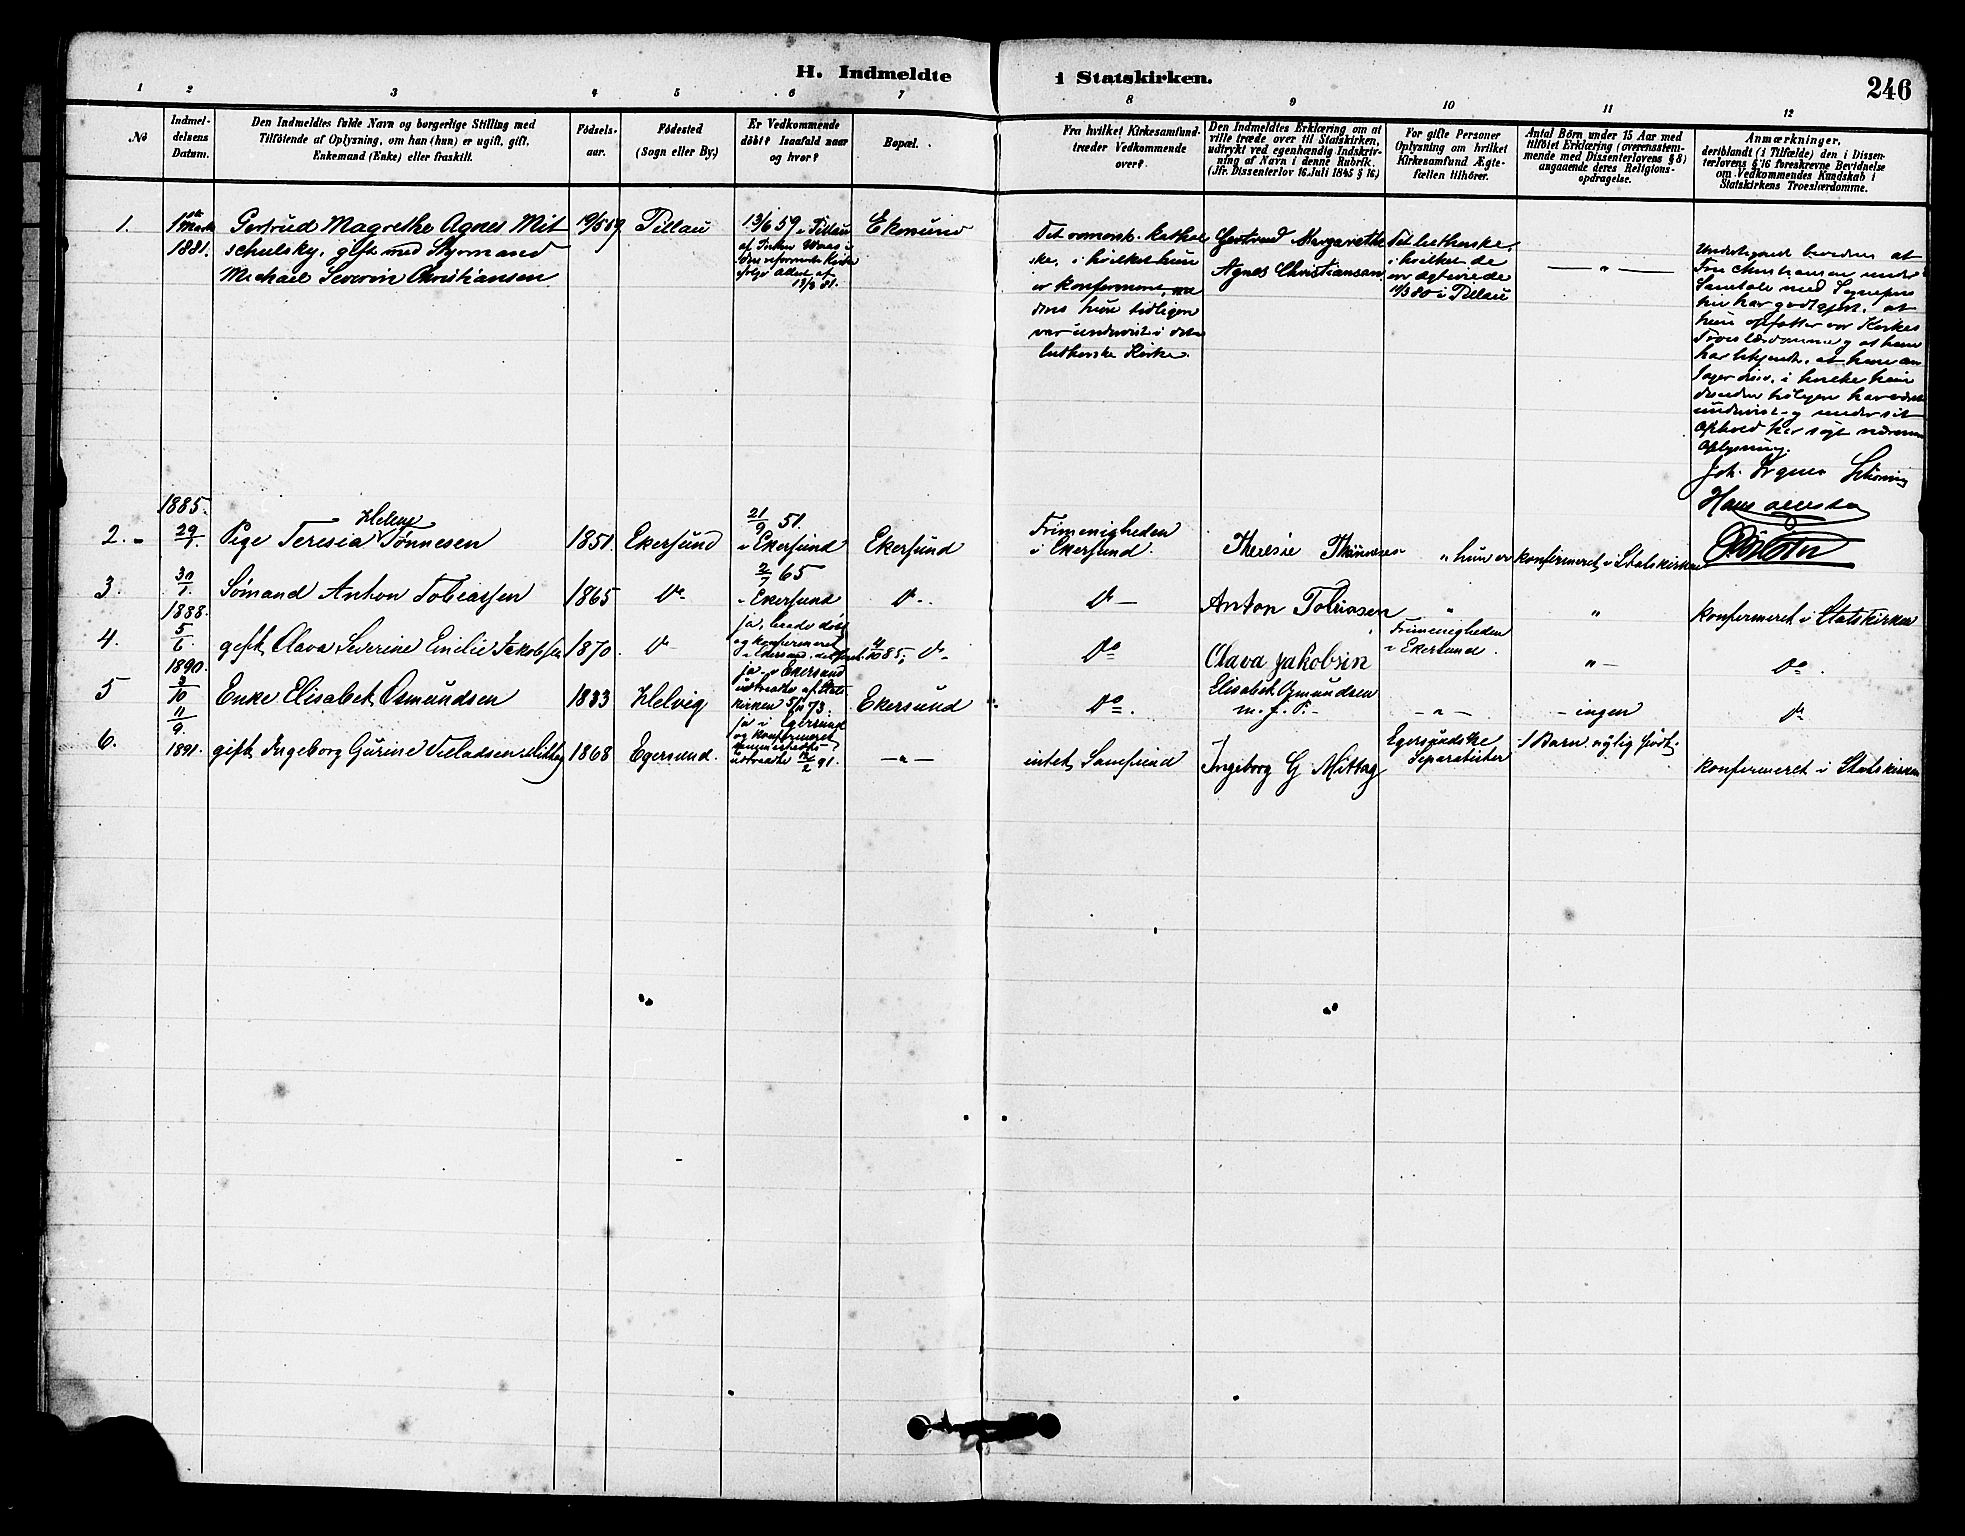 H. Indmeldte i Statskirken.
246
1 2 3 4 5 6 7 8 9 10 11 12
No
Indmel-
delsens
Datum.
Den Indmeldtes fulde Navn og borgerlige Stilling med
Tilföiende af Oplysning, om han (hun) er ugift, gift,
Enkemand (Enke) eller fraskilt.
Födsels-
aar.
Födested
(Sogn eller By.)
Er Vedkommende
döbt? Isaafald naar
og hvor?
Bopæl.
Fra hvilket Kirkesamfund
træder Vedkommende
over?
Den Indmeldtes Erklæring om at
ville træde over til Statskirken,
udtrykt ved egenhændig Indskriv-
ning af Navn i denne Rubrik.
(Jfr. Dissenterlov 16. Juli 1845 § 16.)
For gifte Personer
Oplysning om hvilket
Kirkesamfund Ægte-
fællen tilhörer.
Antal Börn under 15 Aar med
tilföiet Erklæring (overensstem-
mende med Dissenterlovens § 8)
angaaende deres Religions-
opdragelse.
Anmærkninger,
deriblandt (i Tilfælde) den i Dissen-
terlovens § 16 foreskrevne Bevidnelse
om Vedkommendes Kundskab i
Statskirkens Troeslærdomme.
1.
1ste
Marts
1881.
Gertrud Magrethe Agnes Mit
schulsky, gift med Styrmand
Michael Severin Christiansen
19/5 59
Pillau
13/6 59 i Pillau
den reformerte Kirke
ifølge Attest af
Ekersund
Det romersk-kathol
ske, i hvilket hun
er konfirmeret,
dens hun tidligen
var undervist i den
lutherske Kirke.
Gertrud Margarethe
Agnes Christiansen
Det lutherske,
i hvilket de
er ægteviede
11/3 80 i Pillau
— " —
Undertegnede bevidner at
Fru Christiansen under
Samtale med Sognepræs
ten har godtgjort, at
hun opfatter vor Kirkes
Troeslærdomme og at hun
har bekjendt, at hun an
tager disse, i hvilke hun
undervist og under sit
Ophold her søgt nærmere
Oplysning.
2.
1885.
29/7
Pige Teresia Helene Tønnesen
1851
Ekersund
21/9 51.
i Ekersund
Ekersund
Frimenigheden
i Ekersund.
Theresie Thönnesen
" hun er konfirmeret i Statskirken
3.
30/7
Sømand Anton Tobiassen
1865
Do
2/7 65
i Ekersund
Do
Do —
Anton Tobiasen
"
"
konfirmeret i Statskirken
4.
1888.
5/6
gift Olava Severine Emilie Jakobsen
1870.
Do
ja, baade døbt
og konfirmeret
4/10 85; Do
Do
Olava Jakobsen
Frimenigheden
i Ekersund.
" —
Do.
5
1890.
3/10
Enke Elisabet Osmundsen
1833
Helvig
ja, i Ekersund
udtraadte af Stats-
kirken 5/10 73.
Ekersund
Do.
Elisabet Osmundsen
m. f. P.
— " —
— ingen
Do
6.
11/9.
1891.
gift Ingeborg Gurine Tieladsen Mittag
1868
Egersund.
ja i Egersund
og konfirmeret
sammesteds
udtraadte 12/2 91.
— " —
intet Samfund
Ingeborg G Mittag
Egersundske
Separatister
1 Barn nylig født.
konfirmeret i Statskirken